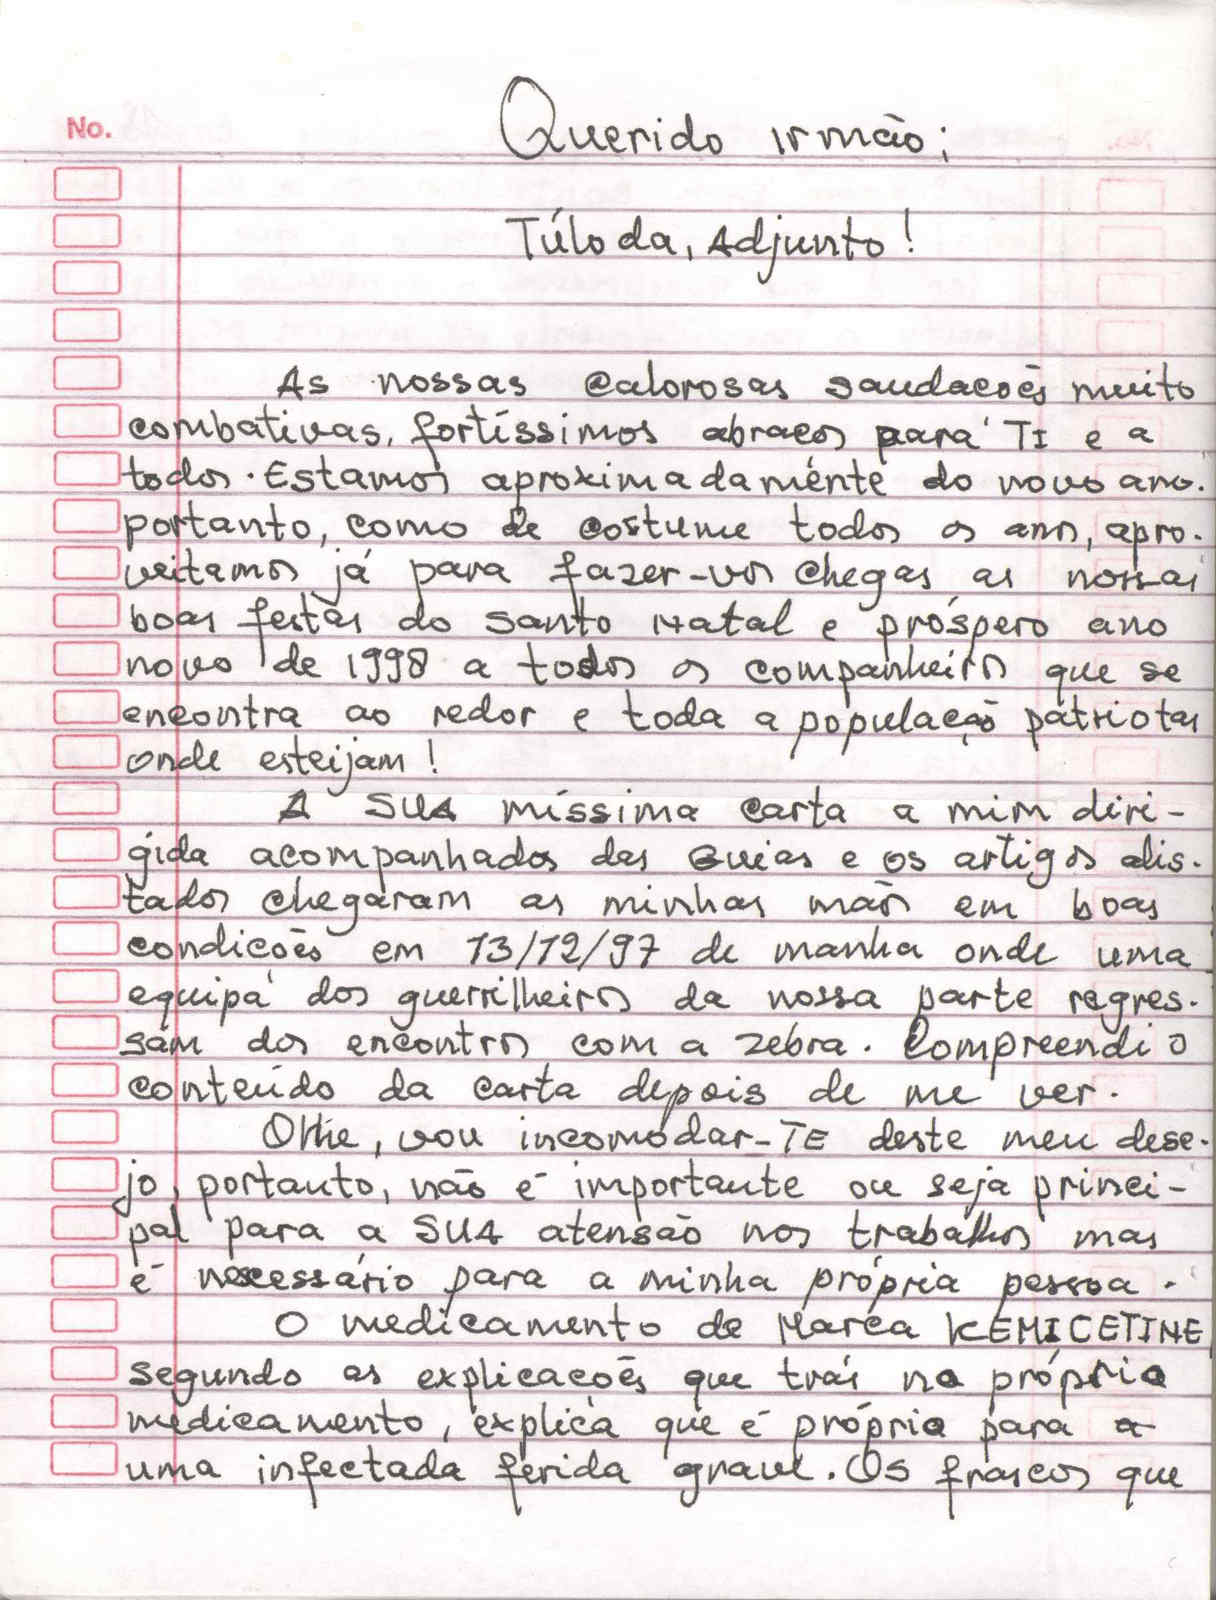 No.
Querido irmão;
Túloda, Adjunto!
As nossas calorosas saudacoẽs muito
combativas, fortíssimos abraços para TI e a
todos. Estamos aproximadaménte do novo ano.
portanto, como de costume todos os anos, apro-
veitamos já para fazer-vos chegas as nossas
boas festas do santo Natal e próspero ano
novo de 1998 a todos os companheiros que se
encontra ao redor e toda a populaçaõ patriotas
onde esteijam!
A SUA míssima carta a mim diri-
gida acompanhados das Guias e os artigos alis-
tados chegaram as minhas maõs em boas
condicoẽs em 13/12/97 de manha onde uma
equipa dos guerrilheiros da nossa parte regres-
sam dos encontros com a zebra. Compreendi o
conteúdo da carta depois de me ver.
Olhe, vou incomodar-TE deste meu dese-
jo, portanto, não é importante ou seja princi-
pal para a SUA atensão nos trabalhos mas
é necessário para a minha própria pessoa.
O medicamento de Marca KEMICETINE
segundo as explicacoẽs que trás no próprio
medicamento, explica que é próprio para a
uma infectada ferida grave. Os frascos que